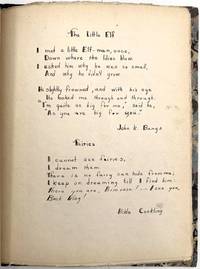 The Little Elf
I met a little Elf-man, once,
Down where the lilies blow.
I asked him why he was so small,
And why he didn't grow.
He slightly frowned, and with his eye
He looked me through and through.
"I'm quite as big for me," said he,
"As you are big for you."
John K. Bangs
Fairies
I cannot see fairies,
I dream them.
There is no fairy can hide from me;
I keep on dreaming till I find him:
There you are, Primrose! I see you,
Black Wing!
Hilda Conkling